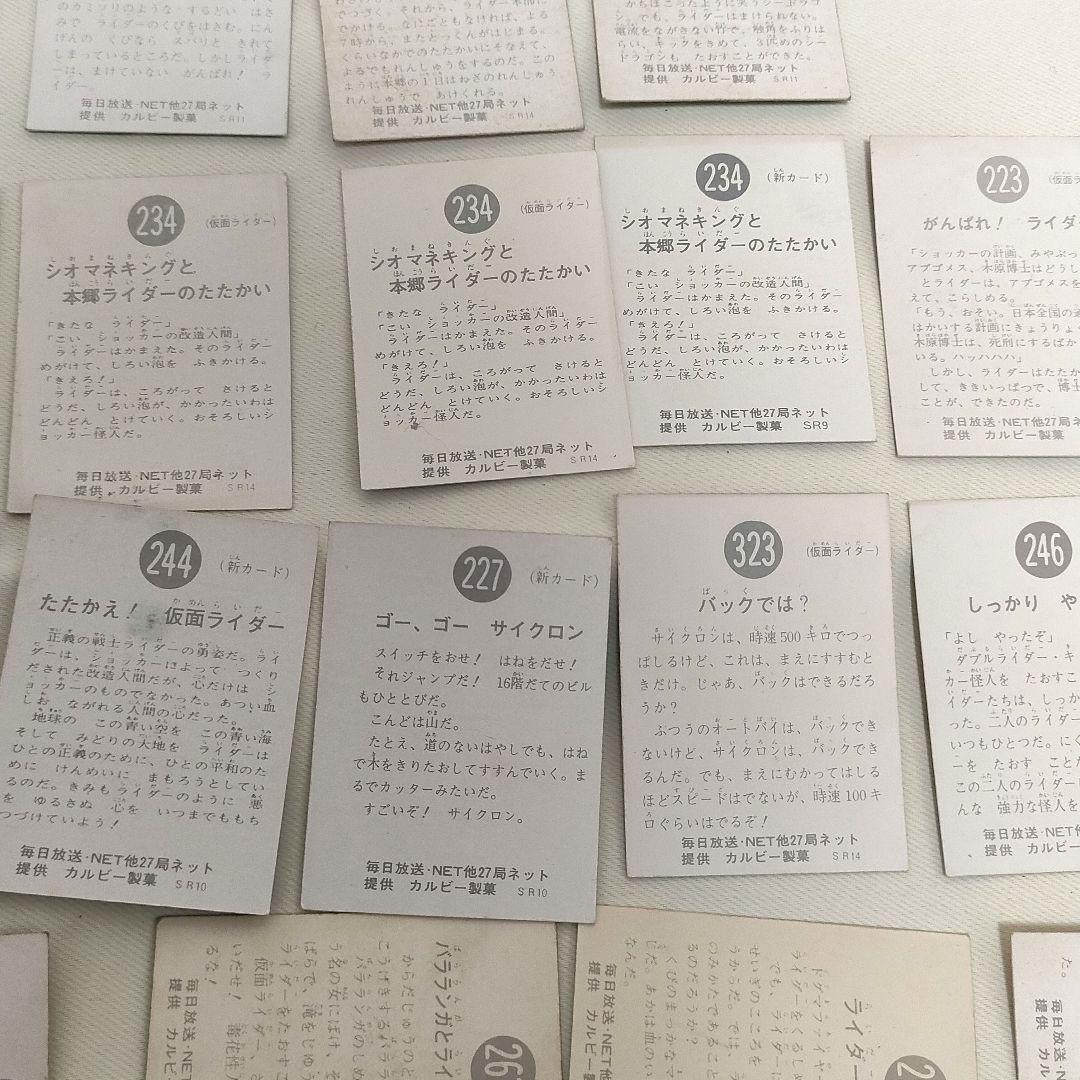 のカミソリのような するどい はさ
みで、ライダーのくびをはさむ。にん
げんの くびなら スパリと きれて
しまっているところだ。しかしライダ
ーは、まけていない がんばれ! ラ
イダー。
毎日放送・NET他27局ネット
提供 カルビー製菓 SR11
でつづく。それから、ライダー本部に
でかける。なにごともなければ、よる
7時から、またとっくんがはじまる。
くらいなかでのたたかいにそなえて、
よるでもれんしゅうをするのだ。この
ように本郷の1日はねぎのれんしゅう
れんしゅうで あけくれる。
毎日放送・NET他27局ネット
提供 カルビー製菓 SR14
ン。でも、ライダーはまけらねない。
電流をながさない竹で、触角をふりは
らい、キックをきめて、3匹めのシー
ドラゴンも たおすことができた。
毎日放送・NET他27局ネット
提供 カルビー製菓 SR11
234 (仮面ライダー)
シオマネキングと
本郷ライダーのたたかい
「きたな ライダー」
「こい ショッカーの改造人間」
ライダーはかまえた。そのライダー
めがけて、しろい泡を ふきかける。
「きえろ!」
ライダーは、ころがって さけると
どうだ、しろい泡が、かかったいわは
どんどん とけていく。おそろしいシ
ョッカー怪人だ。
毎日放送・NET他27局ネット
提供 カルビー製菓 SR14
234 (仮面ライダー)
シオマネキングと
本郷ライダーのたたかい
「きたな ライダー」
「こい ショッカーの改造人間」
ライダーはかまえた。そのライダー
めがけて、しろい泡を ふきかける。
「きえろ!」
ライダーは、ころがって さけると
どうだ、しろい泡が、かかったいわは
どんどん とけていく。おそろしいシ
ョッカー怪人だ。
毎日放送・NET他27局ネット
提供 カルビー製菓 SR14
234 (新カード)
シオマネキングと
本郷ライダーのたたかい
「きたな ライダー」
「こい ショッカーの改造人間」
ライダーはかまえた。そのライダー
めがけて、しろい泡を ふきかける。
「きえろ!」
ライダーは、ころがって さけると
どうだ、しろい泡が、かかったいわは
どんどん とけていく。おそろしいシ
ョッカー怪人だ。
毎日放送・NET他27局ネット
提供 カルビー製菓 SR9
223
がんばれ! ライダ
「ショッカーの計画、みやぶっ
アブゴメス、木原博士はどうし
とライダーは、アブゴメスを
えて、こらしめる。
「もう、おそい。日本全国の
はかいする計画にきょうりょ
木原博士は、死刑にするばか
いる。ハッハハハ」
しかし、ライダーはたたか
して、ききいっぱつで、博士
ことが、できたのだ。
毎日放送・NET他27局ネ
提供 カルビー製菓
244 (新カード)
たたかえ! 仮面ライダー
正義の戦士ライダーの勇姿だ。ライ
ダーは、ショッカーによって つくり
だされた改造人間だが、心だけは シ
ョッカーのものでなかった。あつい血
しお ながれる人間の心だった。
地球の この青い空を この青い海
そして みどりの大地を ライダーは
ひとの正義のために、ひとの平和のた
めに けんめいに まもろうとしてい
るのだ。きみもライダーのように 悪
を ゆるさぬ 心を いつまでももち
つづけていよう!
毎日放送・NET他27局ネット
提供 カルビー製菓 SR10
227 (新カード)
ゴー、ゴー サイクロン
スイッチをおせ! はねをだせ!
それジャンプだ! 16階だてのビル
もひととびだ。
こんどは山だ。
たとえ、道のないはやしでも、はね
で木をきりたおしてすすんでいく。ま
るでカッターみたいだ。
すごいぞ! サイクロン。
毎日放送・NET他27局ネット
提供 カルビー製菓 SR10
323 (仮面ライダー)
バックでは?
サイクロンは、時速500キロでつっ
ぱしるけど、これは、まえにすすむと
きだけ。じゃあ、バックはできるだろ
うか?
ぶつうのオートバイは、バックでき
ないけど、サイクロンは、バックでき
るんだ。でも、まえにむかってはしる
ほどスピードはでないが、時速100キ
ロぐらいはでるぞ!
毎日放送・NET他27局ネット
提供 カルビー製菓 SR14
246
しっかり や
「よし やったぞ」
ダブルライダー・キ
カー怪人を たおすこ
イダーたちは、しっか
った。二人のライダー
いつもひとつだ。にく
ーを たおす ことだ
この二人のライダーが
んな 強力な怪人を
毎日放送・NET他
提供 カルビー製
バラランガとライ
からだじゅうのと
こうげきするバララ
バラランガのしめ
う名の女にばけ、を
ばらで、滝をじゅう
ライダーをたおすこ
仮面ライダー、さ
いだせ! 薔花性
るな!
毎日放送・NET
提供 カルビ
ライダー
ドクマファイヤ
ライダーをくるしめ
でも、ライダーに
せいぎのこころを
うからだ。では、ラ
のみかたであること
るのだろうか?
くびのまっかなマ
じだ。あかは血のい
なんだ。
毎日放送・NET
提供 カルビ
た。
毎日放送・NE
提供 カル